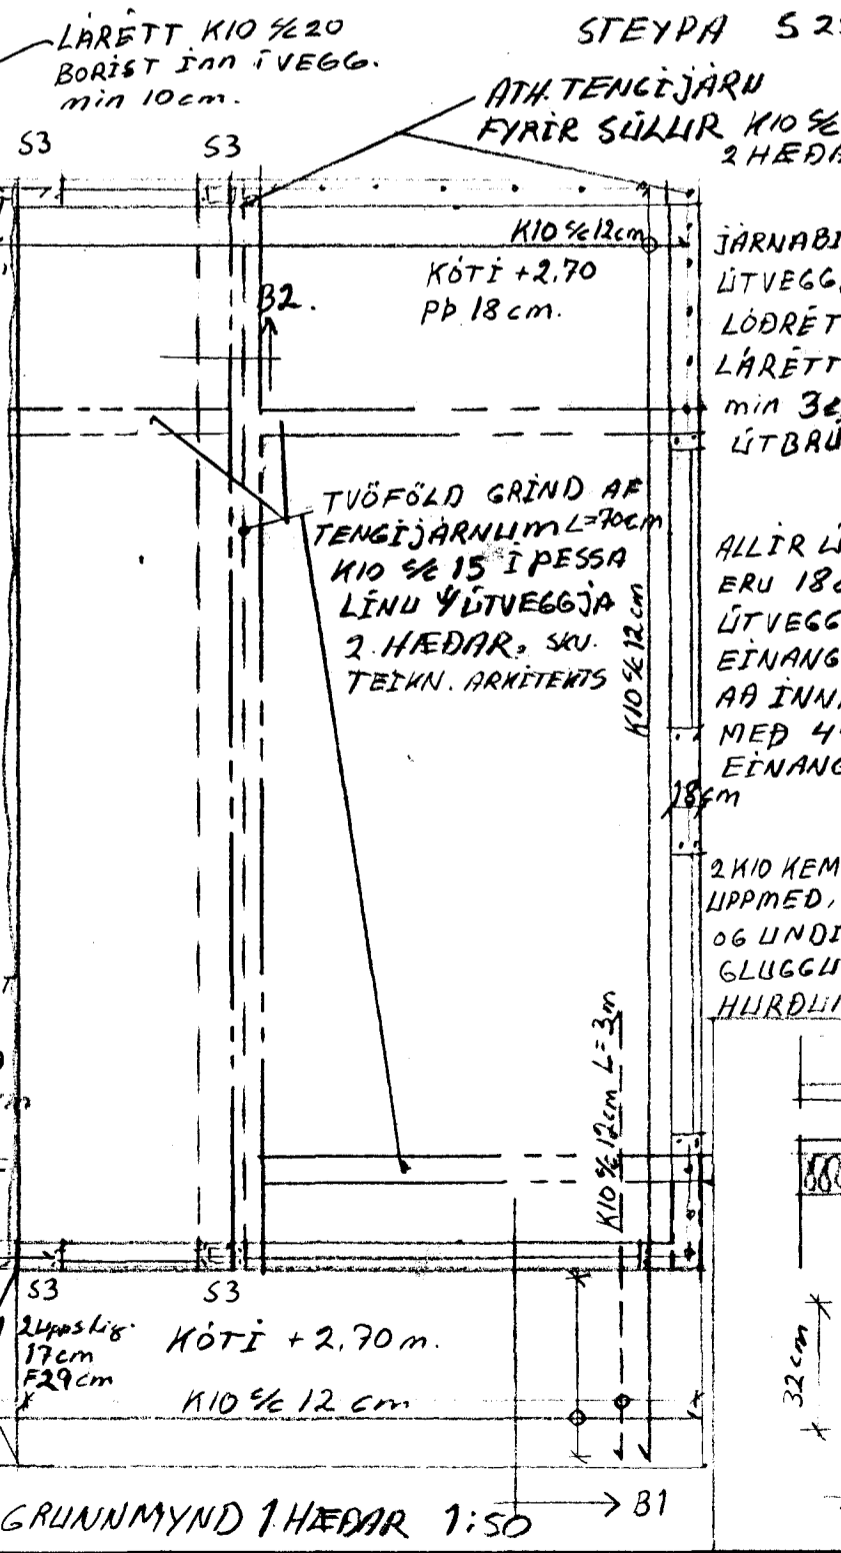 LÁRÉTT K10 c/c 20
BORIST INN Í VEGG.
min 10cm.
STEYPA S 2
ATH. TENGIJÁRN
FYRIR SÚLUR K10 c/c
2 HÆÐA
S3 S3
K10 c/c 12cm
KÓTI +2,70
PÞ 18 cm.
B2.
JÁRNABI
ÚTVEGG
LÓÐRÉT
LÁRÉTT
min 3
ÚTBRÚ
TVÖFÖLD GRIND AF
TENGIJÁRNUM L=70cm
K10 c/c 15 Í ÞESSA
LÍNU V/ÚTVEGGJA
2. HÆÐAR, SKV.
TEIKN. ARKITEKTS
K10 c/c 12 cm
ALLIR Ú
ERU 18
ÚTVEGG
EINANG
AÐ INN
MEÐ 4
EINANG
18cm
2 K10 KEM
UPPMEÐ,
OG UNDI
GLUGGU
HURÐU
K10 c/c 12cm L=3m
S3 S3
2 Uppstig.
17cm
F29cm
KÓTI +2,70 m.
K10 c/c 12 cm
32 cm
B1
GRUNNMYND 1 HÆÐAR 1:50